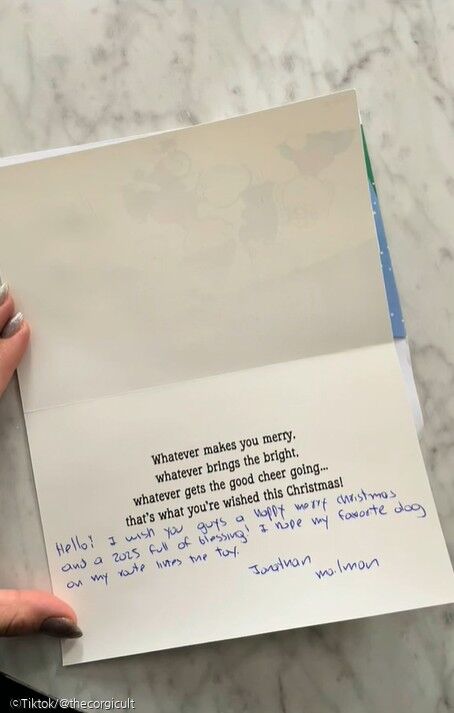 Whatever makes you merry,
whatever brings the bright,
whatever gets the good cheer going...
that's what you're wished this Christmas!
Hello! I wish you guys a happy merry christmas
and a 2025 full of blessing! I hope my favorite dog
on my route likes the toy.
Jonathan
mailman
©Tiktok/@thecorgicult